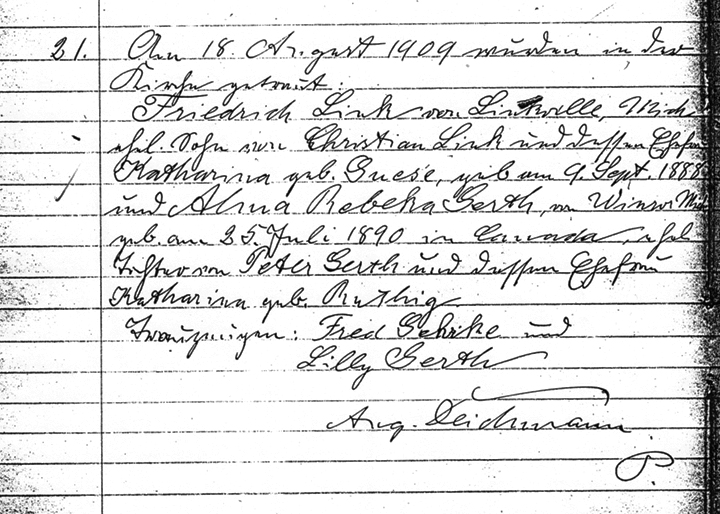 21. Am 18 August 1909 wurden in der
Kirche getraut:
Friedrich Link von Linkville, Mich
ehel. Sohn von Christian Link und dessen Ehefrau
Katharina geb. Guese, geb. am 9. Sept. 1888
und Alma Rebeka Gerth, von Winsor Mich
geb. am 25. Juli 1890 in Canada, ehel
Tochter von Peter Gerth und dessen Ehefrau
Katharina geb. Ruthig
Trauzeugen: Fred Gehrke und
Lilly Gerth
Aug. Deichmann
P.